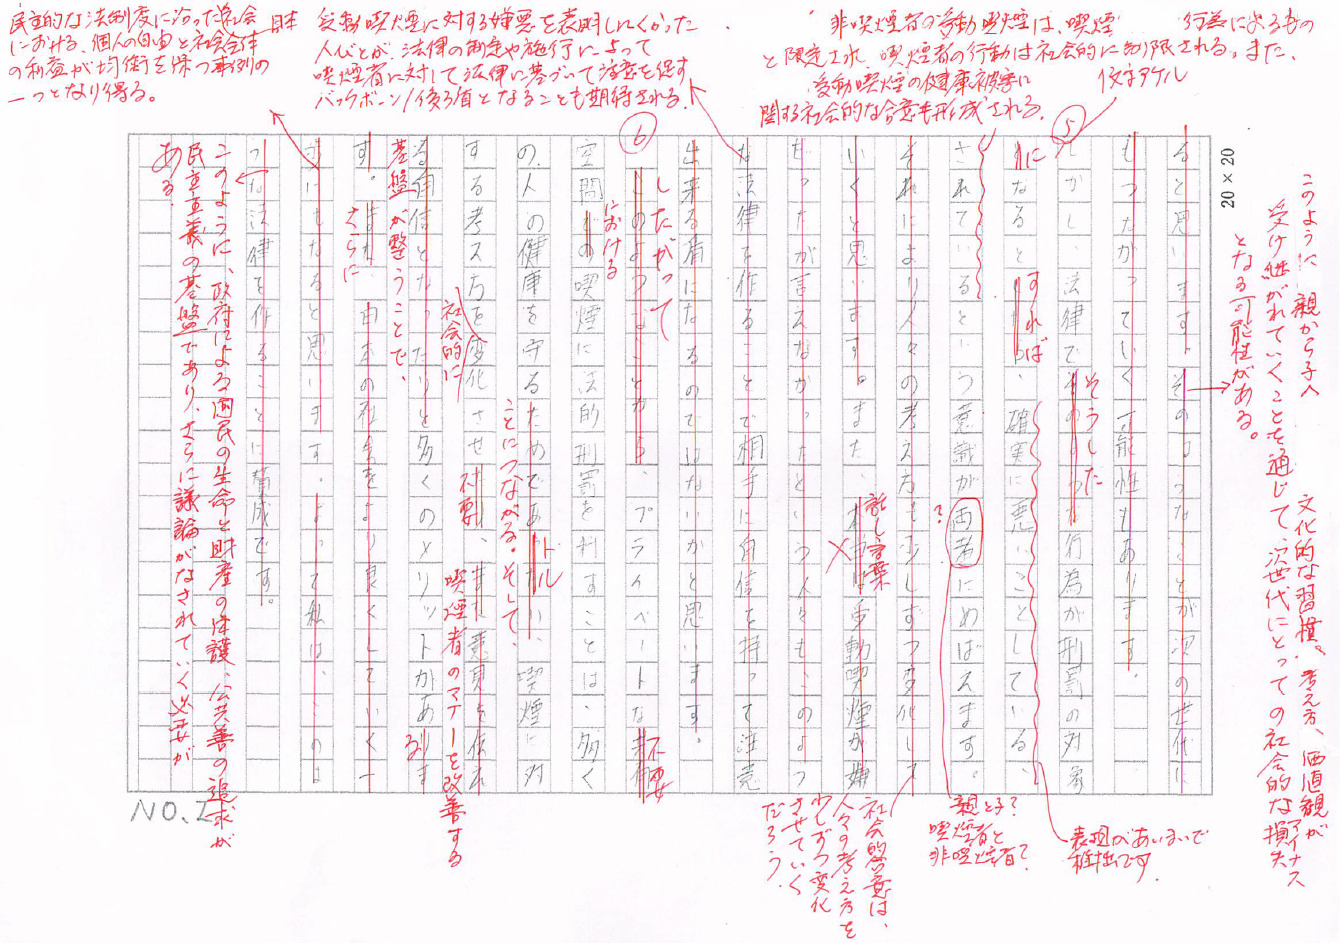 このように、親から子へ
文化的な習慣、考え方、価値観が
受け継がれていくことを通じて、次世代にとっての社会的な損失
マイナス
となる可能性がある。
20 × 20
非喫煙者の受動喫煙は、喫煙
行為によるもの
と限定され、喫煙者の行動は社会的に制限される。また、
受動喫煙の健康被害に
関する社会的な合意も形成される。
1文字アケル
⑤
受動喫煙に対する嫌悪を表明しにくかった
人びとが、法律の制定や施行によって
喫煙者に対して法律に基づいて注意を促す
バックボーン/後ろ盾となることも期待される。
⑥
民主的な法制度に沿った社会
における、個人の自由と社会全体
の利益が均衡を保つ事例の
一つとなり得る。
ると思います。そのようなことが次の世代に
もつたがっていく可能性もあります。
しかし、法律で
行為が刑罰の対象
そうした
に
なると
、確実に悪いことしている、
すれば
されているという意識が両者にめばえます。
?
それにより人々の考え方も少しずつ変化して
いくと思います。また、
受動喫煙が嫌
話し言葉
だったが言えなかったという人々も、このよう
な法律を作ることで相手に自信を持って注意
出来る盾になるのではないかと思います。
このようなことから、プライベートな
したがって
不要
空間での喫煙に法的刑罰を科すことは、多く
における
の人の健康を守るためであ
い、喫煙に対
トル
ことにつながる。そして、
する考え方を変化させ
、また意見を伝え
社会的に
不要
喫煙者のマナーを改善する
る自信となったりと多くのメリットがあります
る
基盤が整うことで、
す。また、日本の社会をより良くしていく一
さらに
歩にもなると思います。よって私は、このよ
うな法律を作ることに賛成です。
このように、政府による国民の生命と財産の保護、公共善の追求が
民主主義の基盤であり、さらに議論がなされていく必要が
ある。
表現があいまいで
稚拙です
親と子?
喫煙者と
非喫煙者?
社会的合意は、
人々の考え方を
少しずつ変化
させていく
だろう。
NO.2